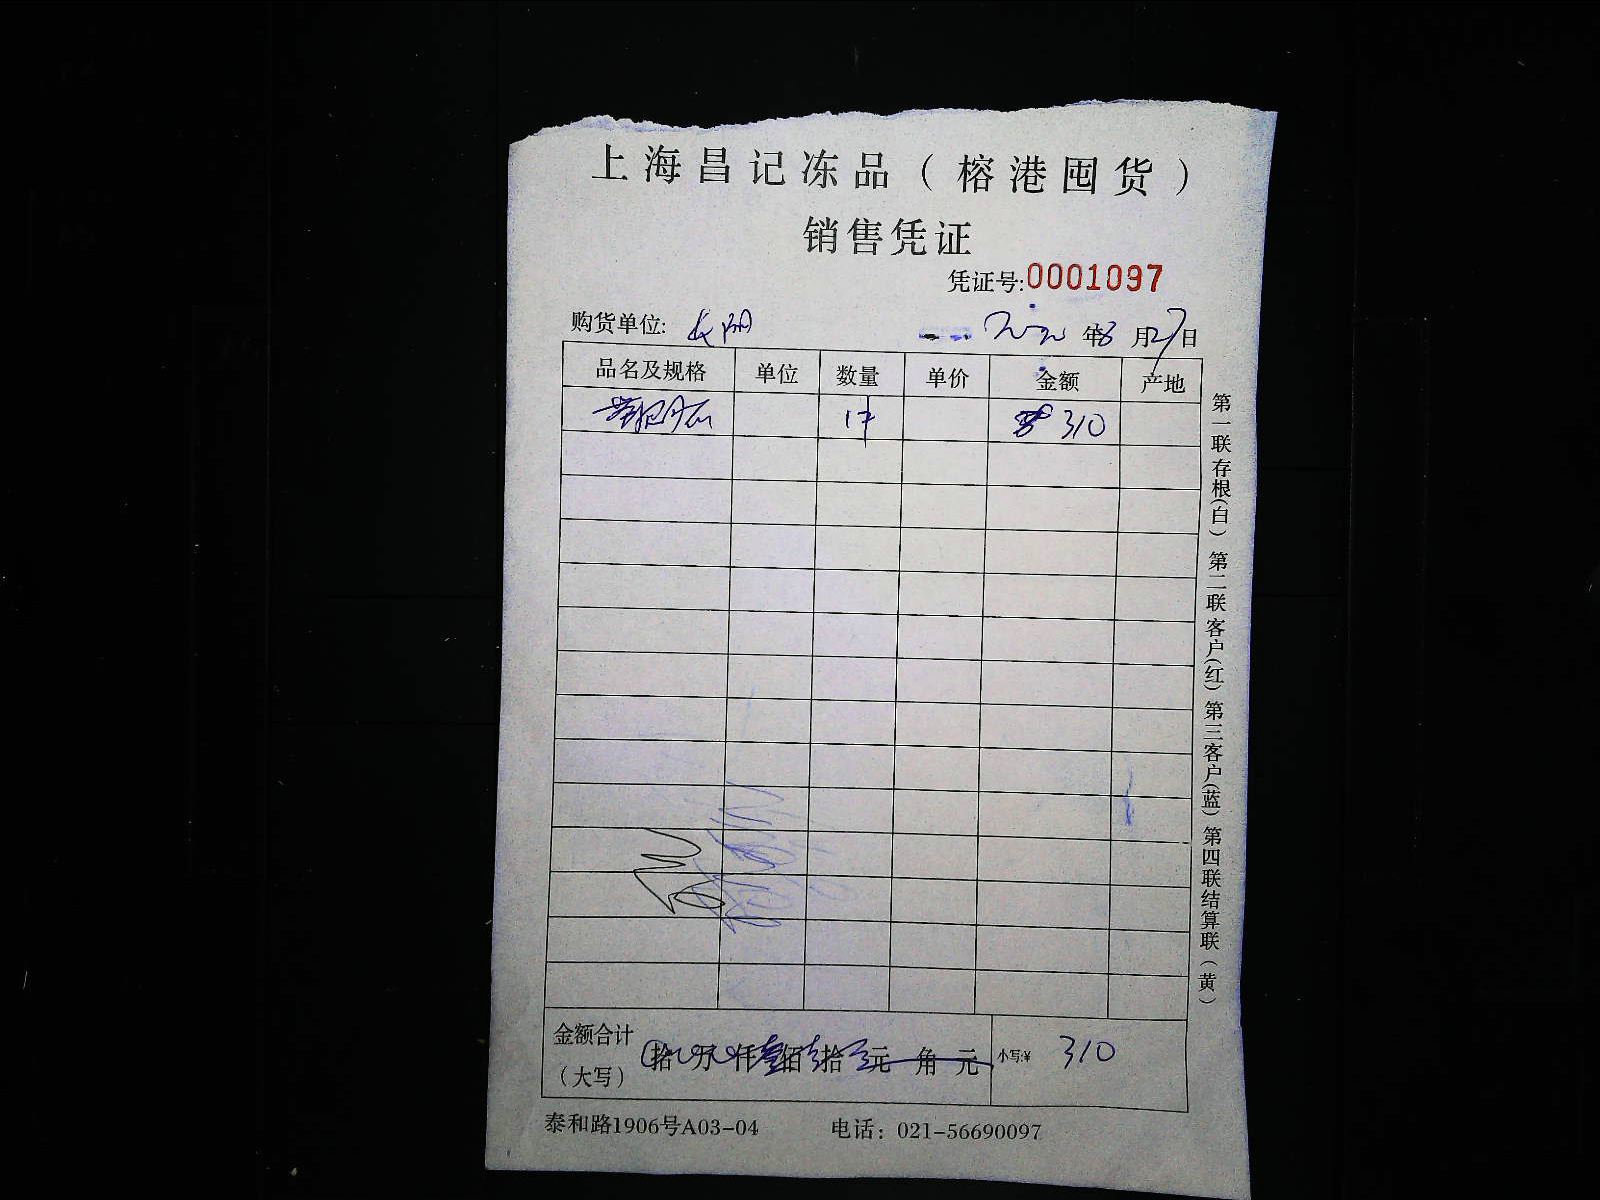 上海昌记冻品（榕港囤货）
销售凭证
凭证号:0001097
购货单位: 长阳 年8月27日
品名及规格 单位 数量 单价 金额 产地
1件 310
第一联存根(白) 第二联客户(红) 第三客户(蓝) 第四联结算联(黄)
金额合计
（大写） 拾 万 仟叁佰壹拾 元 角 元 小写:¥ 310
泰和路1906号A03-04 电话：021-56690097